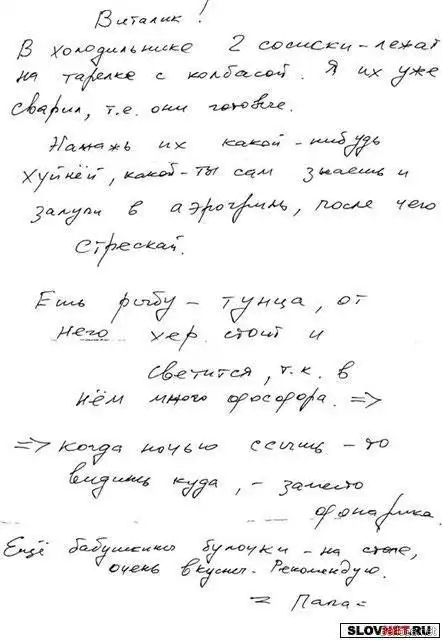 Виталик!
В холодильнике 2 сосиски - лежат
на тарелке с колбасой. Я их уже
сварил, т.е. они готовые.
Намажь их какой-нибудь
хуйнёй, какой - ты сам знаешь и
залупи в аэрогриль, после чего
стрескай.
Ешь рыбу - тунца, от
него хер стоит и
светится, т.к. в
нём много фосфора. =>
=> когда ночью ссышь - то
видишь куда, - заместо
фонарика.
Ещё бабушкины булочки - на столе,
очень вкусны. Рекомендую.
= Папа =
SLOVNET.RU